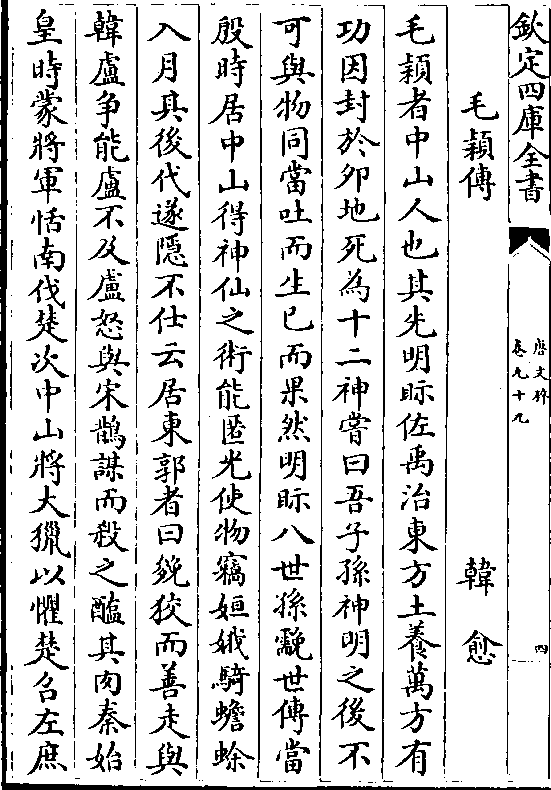 欽定四庫全書
唐文粹
卷九十九
四
毛穎傳
韓愈
毛穎者中山人也其先明眎佐禹治東方土養萬方有
功因封於卯地死為十二神嘗曰吾子孫神明之後不
可與物同當吐而生已而果然明眎八世孫䨲世傳當
殷時居中山得神仙之術能匿光使物竊姮娥騎蟾蜍
入月其後代遂隠不仕云居東郭者曰㕙狡而善走與
韓盧争能盧不及盧怒與宋鵲謀而殺之醢其肉秦始
皇時蒙將軍恬南伐楚次中山將大獵以懼楚召左庶